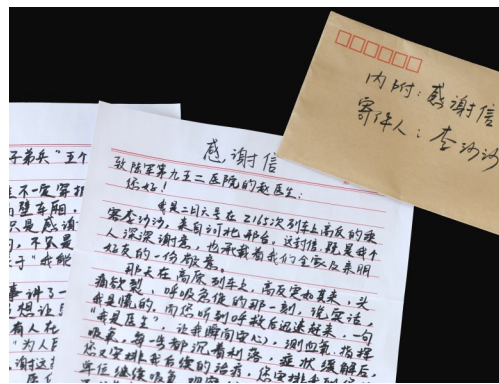 内附：感谢信
寄件人：李沙沙
感谢信
致陆军第九五三医院的赵医生：
您好！
我是二月六号在Z165次列车上高反的乘
客李沙沙，来自河北邢台。这封信，既是我个
人深深谢意，也承载着我们全家及亲朋
好友的一份敬意。
那天在高原列车上，高反突如其来，头
痛欲裂，呼吸急促的那一刻，说实话，
我是懵的。而您听到呼救后迅速赶来，一句
"我是医生"，让我瞬间安心，测血氧、指挥
吸氧，每一步都沉着利落，症状缓解后，
您又安排我后续的治疗，您安排
子弟兵"五个
不一定穿
车厢，
只是感谢
的，不只是
于"我能
事讲了一
想让
有人在
"为人
谢这